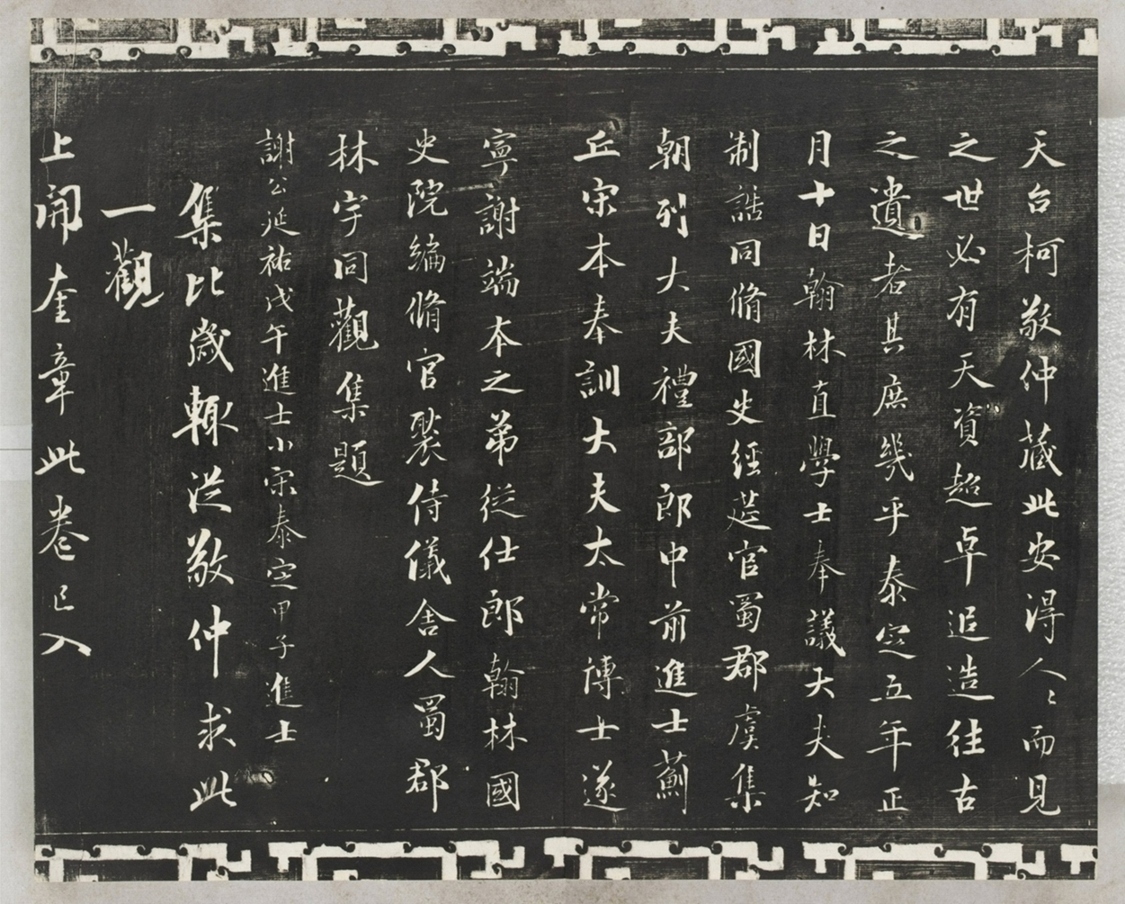 天台柯敬仲藏此安得人〻而見
之世必有天資超卓追造往古
之遺者其庶幾乎泰定五年正
月十日翰林直學士奉議大夫知
制誥同脩國史經筵官蜀郡虞集
朝列大夫禮部郎中前進士薊
丘宋本奉訓大夫太常博士遂
寧謝端本之弟從仕郎翰林國
史院編脩官褧侍儀舍人蜀郡
林宇同觀集題
謝公延祐戊午進士小宋泰定甲子進士
集比歲輒從敬仲求此
一觀
上開奎章此卷已入